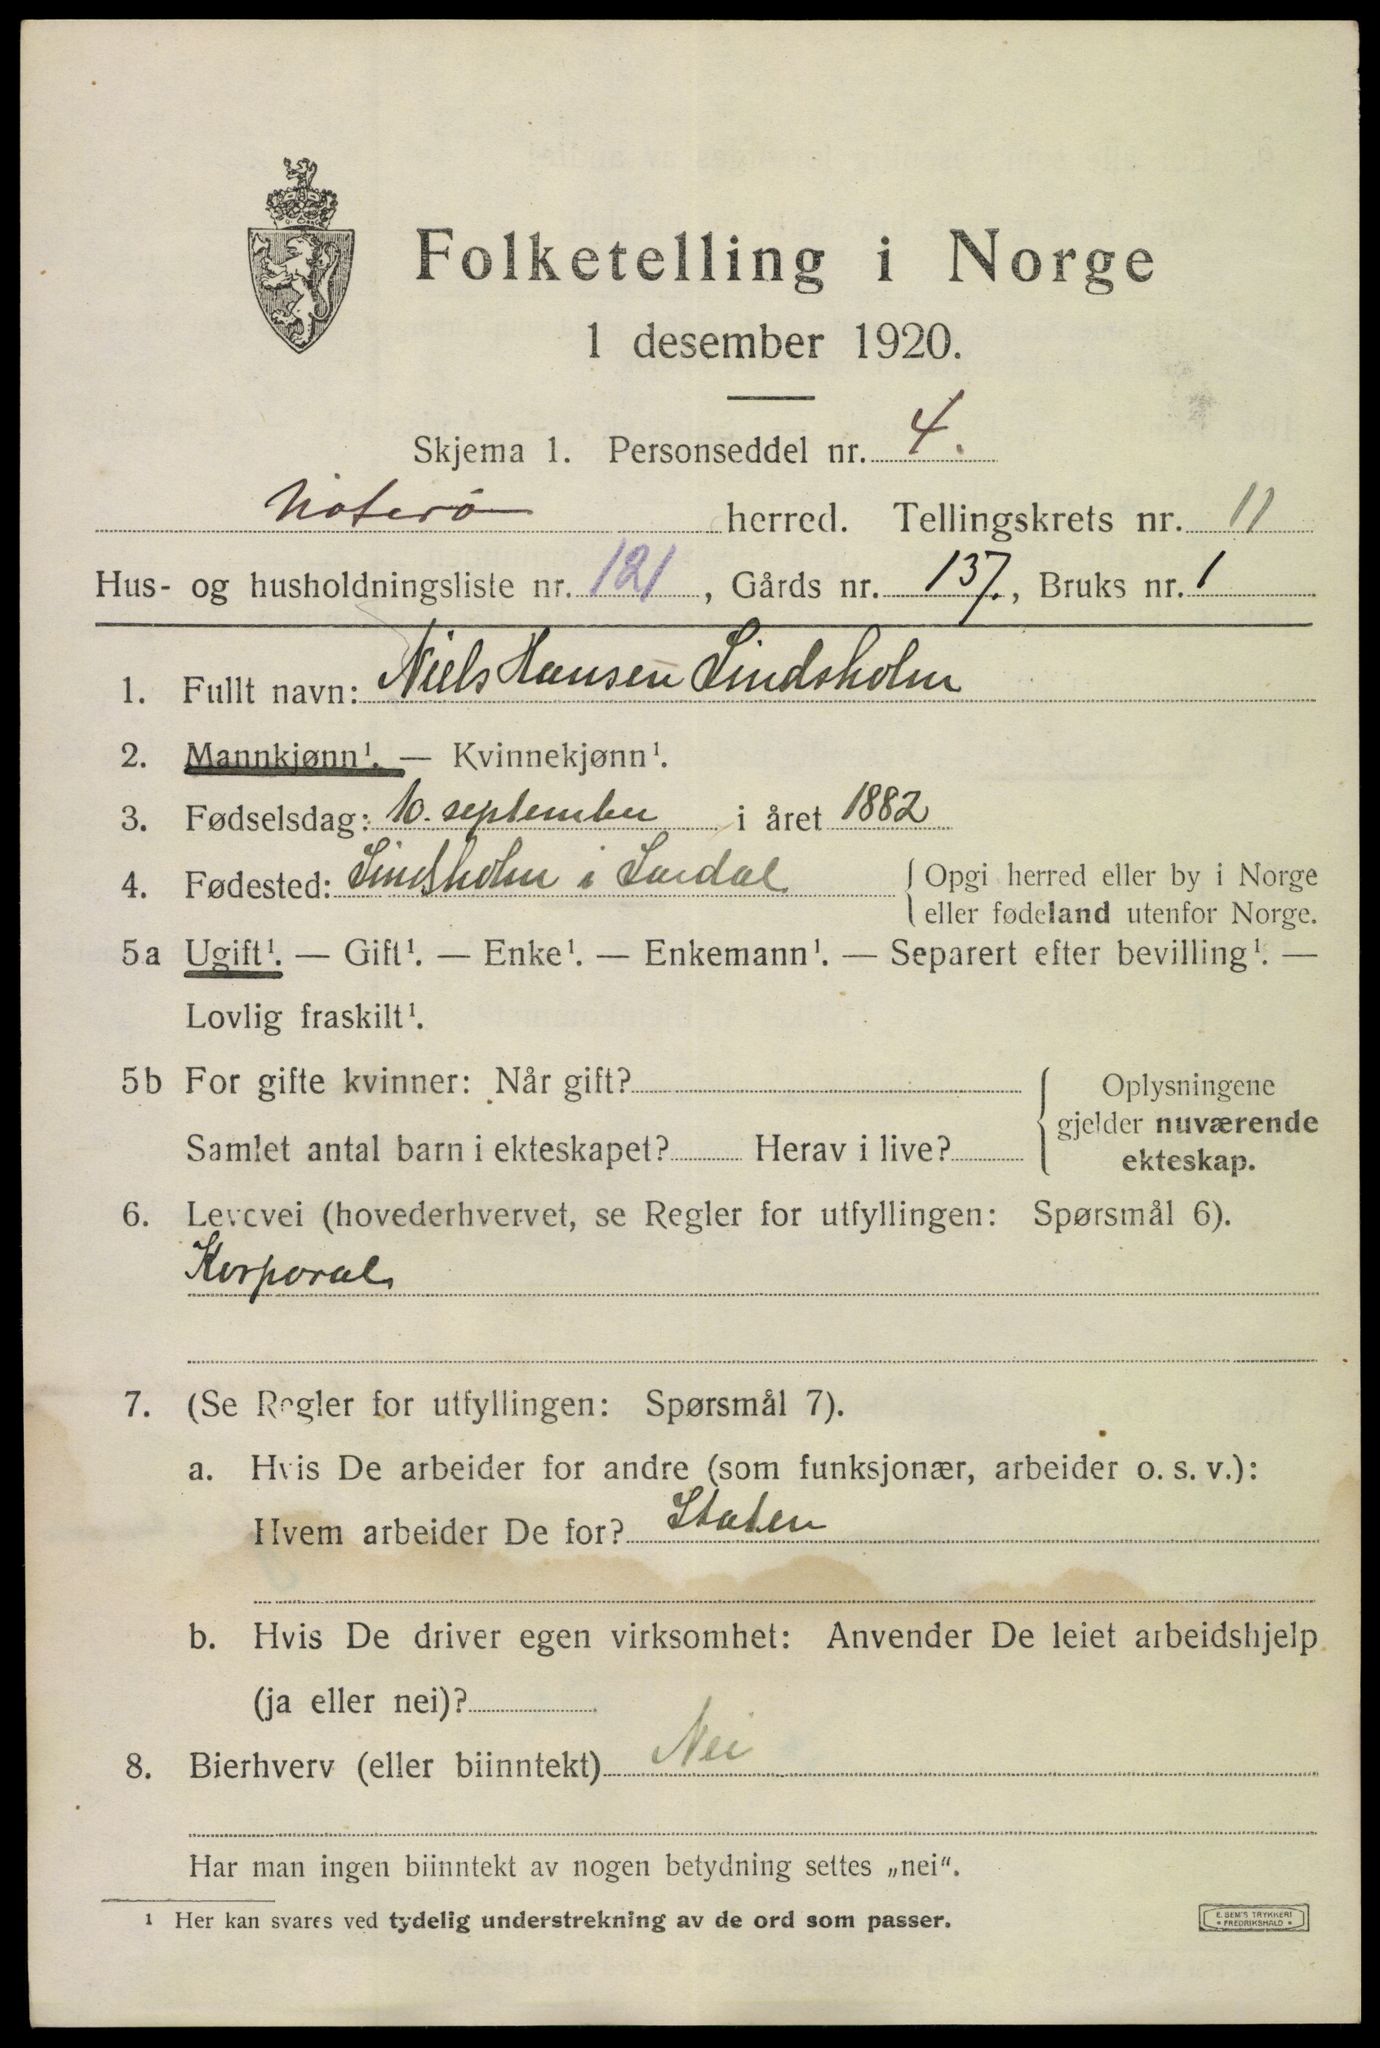 Folketelling i Norge
1 desember 1920.
Skjema 1. Personseddel nr. 4.
Nøterø herred. Tellingskrets nr. 11
Hus- og husholdningsliste nr. 121, Gårds nr. 137., Bruks nr. 1
1. Fullt navn: Niels Hansen Lindsholm
2. Mannkjønn¹. — Kvinnekjønn¹.
3. Fødselsdag: 10. september i året 1882
4. Fødested: Lindsholm i Lardal { Opgi herred eller by i Norge
eller fødeland utenfor Norge.
5a Ugift¹. — Gift¹. — Enke¹. — Enkemann¹. — Separert efter bevilling¹. —
Lovlig fraskilt¹.
5b For gifte kvinner: Når gift? { Oplysningene
gjelder nuværende
Samlet antal barn i ekteskapet? Herav i live? ekteskap.
6. Levevei (hovederhvervet, se Regler for utfyllingen: Spørsmål 6).
Korporal
7. (Se Regler for utfyllingen: Spørsmål 7).
a. Hvis De arbeider for andre (som funksjonær, arbeider o. s. v.):
Hvem arbeider De for? Staten
b. Hvis De driver egen virksomhet: Anvender De leiet arbeidshjelp
(ja eller nei)?
8. Bierhverv (eller biinntekt) Nei
Har man ingen biinntekt av nogen betydning settes „nei“.
¹ Her kan svares ved tydelig understrekning av de ord som passer.
E. SEM'S TRYKKERI
• FREDRIKSHALD •